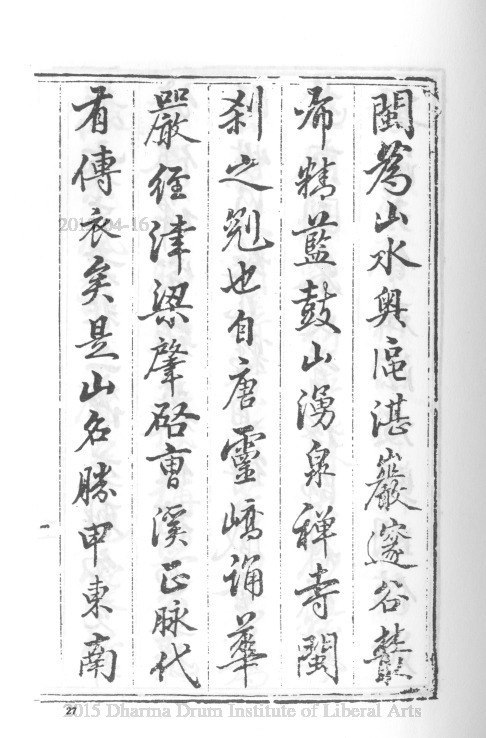 閩為山水奧區湛巖邃谷
精藍鼓山湧泉禪寺閩
剎之冠也自唐靈嶠誦華
嚴經津梁肇啓曹溪正脉代
有傳衣矣是山名勝甲東南
2015-04-16
27
2015 Dharma Drum Institute of Liberal Arts